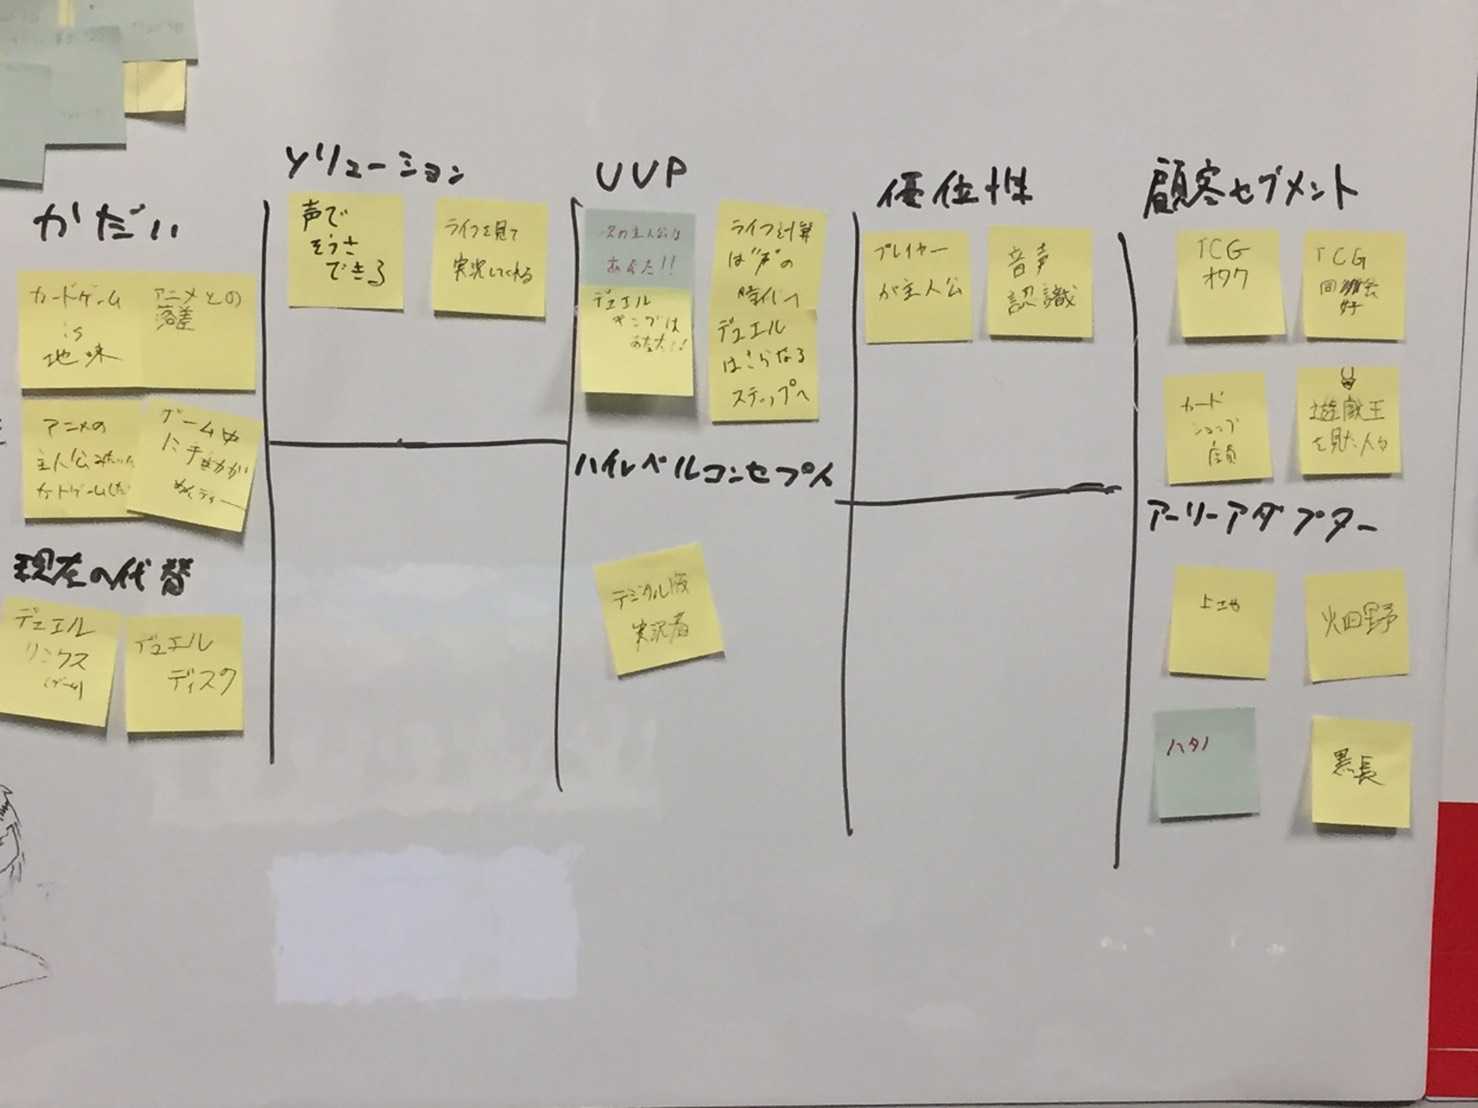 かだい
カードゲーム
is
地味
アニメとの
落差
アニメの
主人公みたいに
カードゲームしたい
ゲーム中
に手動が
現在の代替
デュエル
リンクス
(ゲーム)
デュエル
ディスク
ソリューション
声で
そうさ
できる
ライフを見て
実況してくれる
UVP
次の主人公は
あなた!!
デュエル
キングは
あなた!!
ライフ計算
は"声"の
時代へ
デュエル
はさらなる
ステップへ
ハイレベルコンセプト
デジタル版
実況者
優位性
プレイヤー
が主人公
音声
認識
顧客セグメント
TCG
オタク
TCG
好
カード
ショップ
店員
遊戯王
を見た人々
アーリーアダプター
火田野
ハタノ
黒長